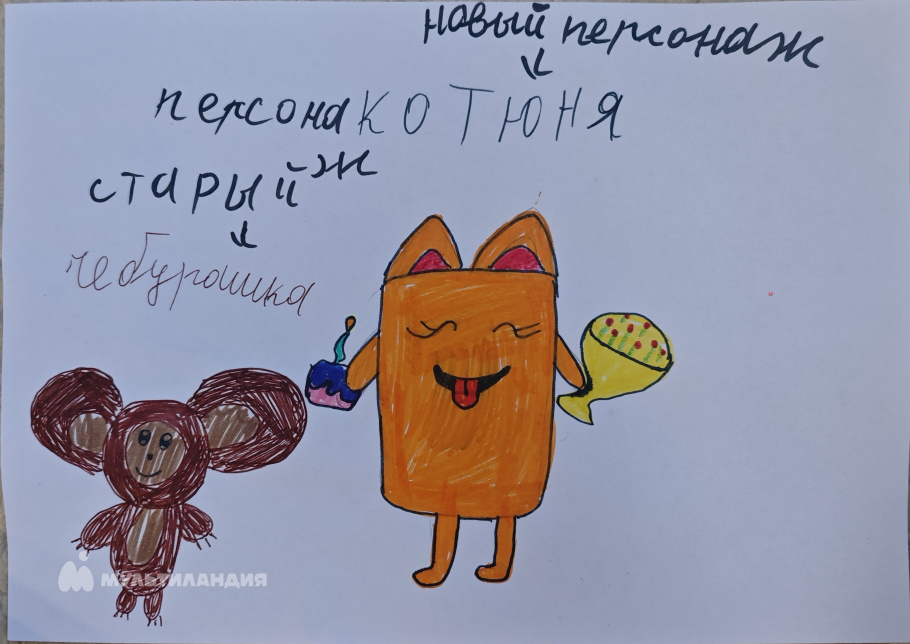 новый персонаж
КОТЮНЯ
старый персонаж
чебурашка
МУЛЬТИЛАНДИЯ